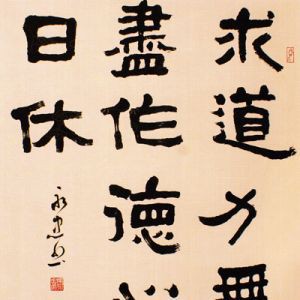 求道力無
盡作德心
日休